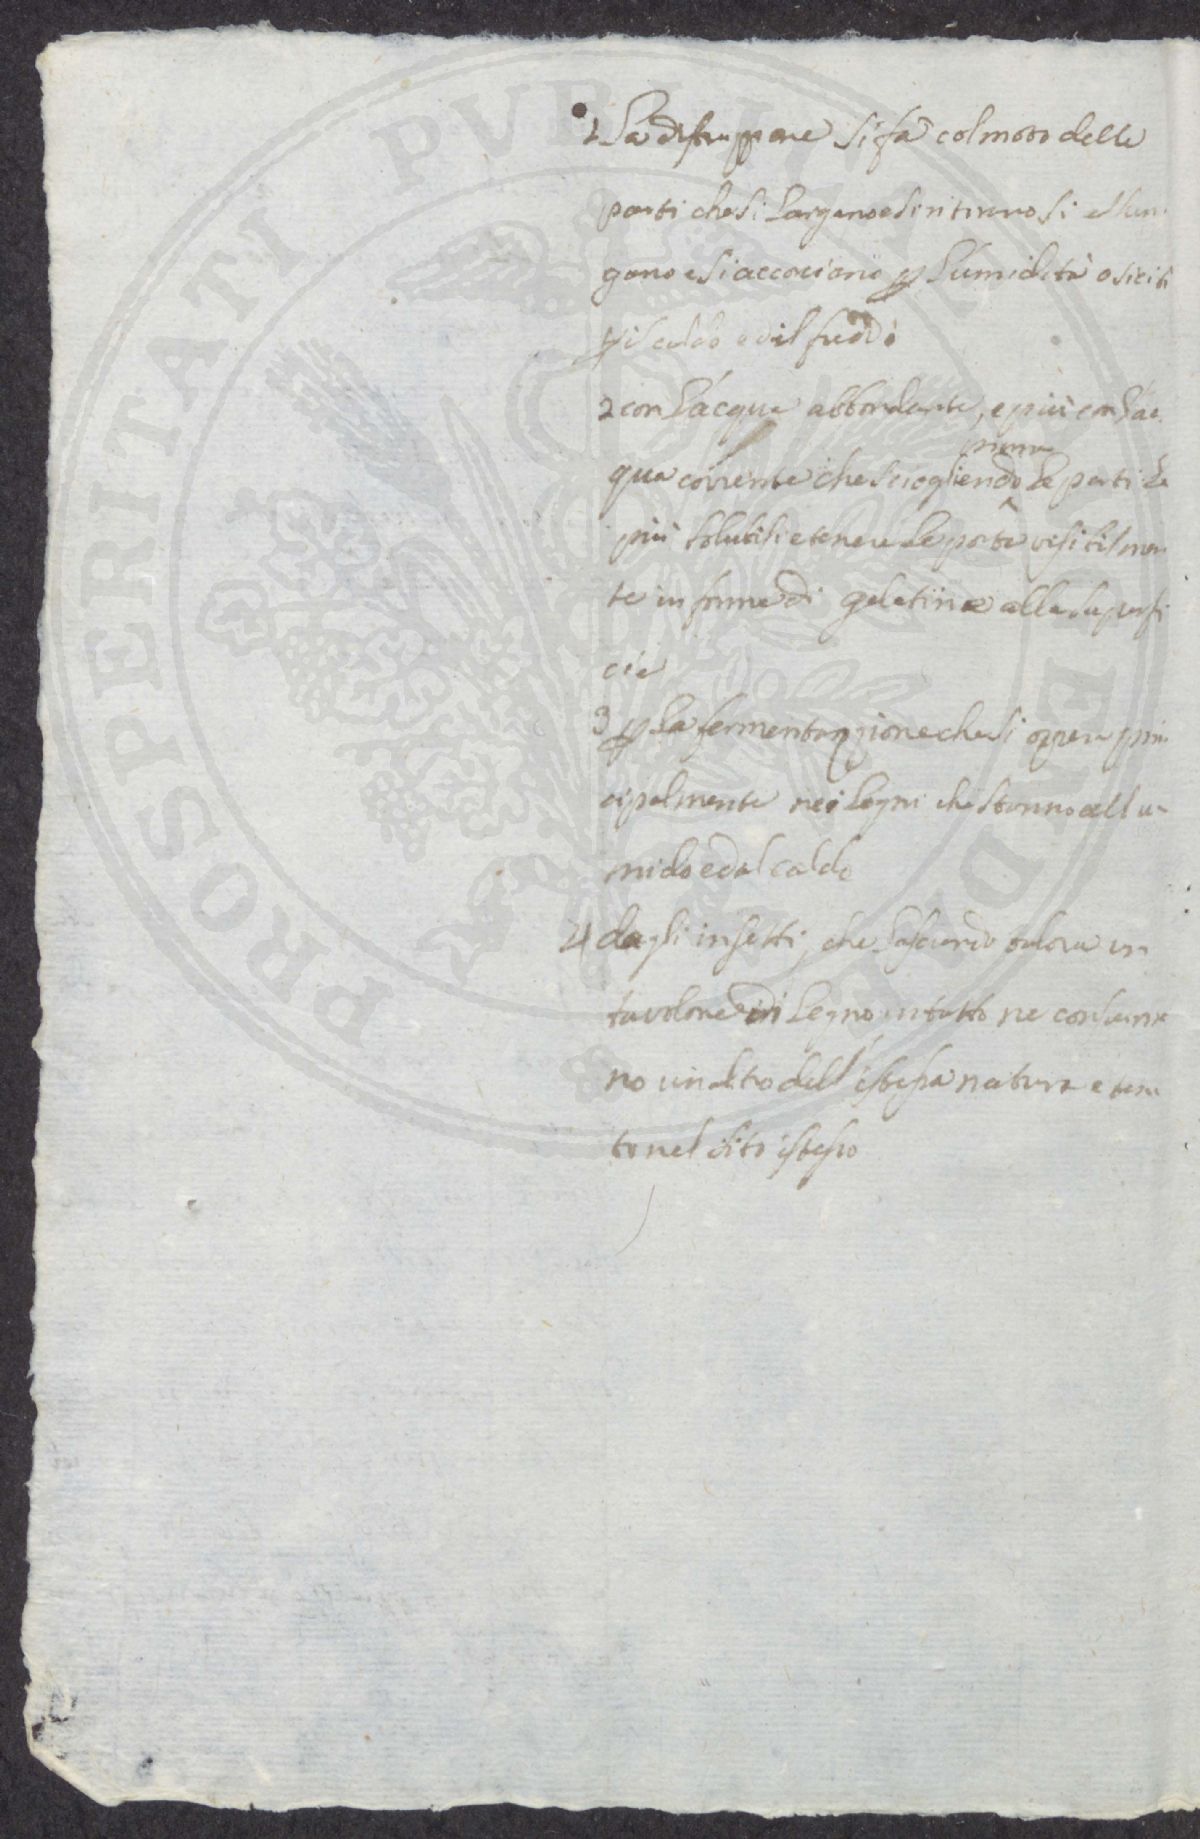 1 La distruzzione si fà col moto delle
parti che si largano e si ritirano si allun-
gano e si accorciano p l'umidità o sicità
p il caldo ed il freddo
2 con l'acqua abbondante, e più con l'ac-
prima
qua corrente che sciogliendo le parti le
più solubili e tenere le porta visibilmen-
te in forma di gelatina alla superfi
cie
3 p la fermentazzione che si opera prin-
cipalmente nei legni che stanno all'u-
mido ed al caldo
4 dagli insetti, che lasciando talora un
tavolone di legno intatto ne consuma-
no un altro dell'istessa natura e tenu-
to nel sito istesso
PROSPERITATI PVBLICAE